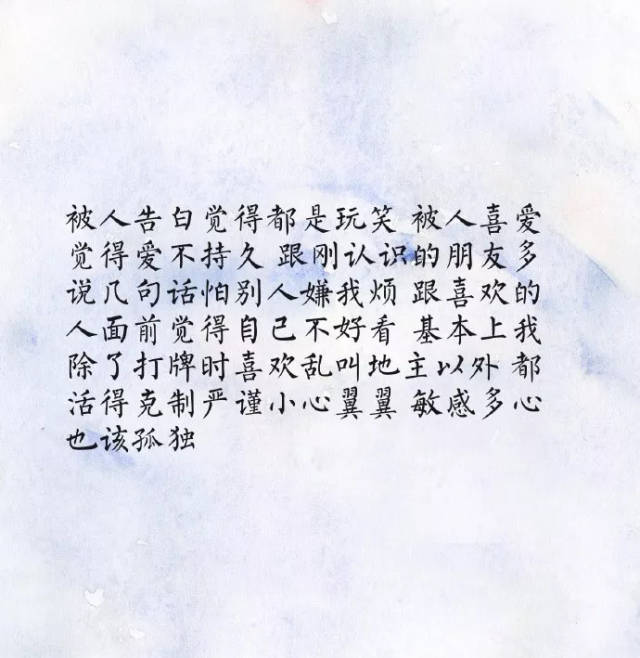 被人告白觉得都是玩笑 被人喜爱
觉得爱不持久 跟刚认识的朋友多
说几句话怕别人嫌我烦 跟喜欢的
人面前觉得自己不好看 基本上我
除了打牌时喜欢乱叫地主以外 都
活得克制严谨小心翼翼 敏感多心
也该孤独